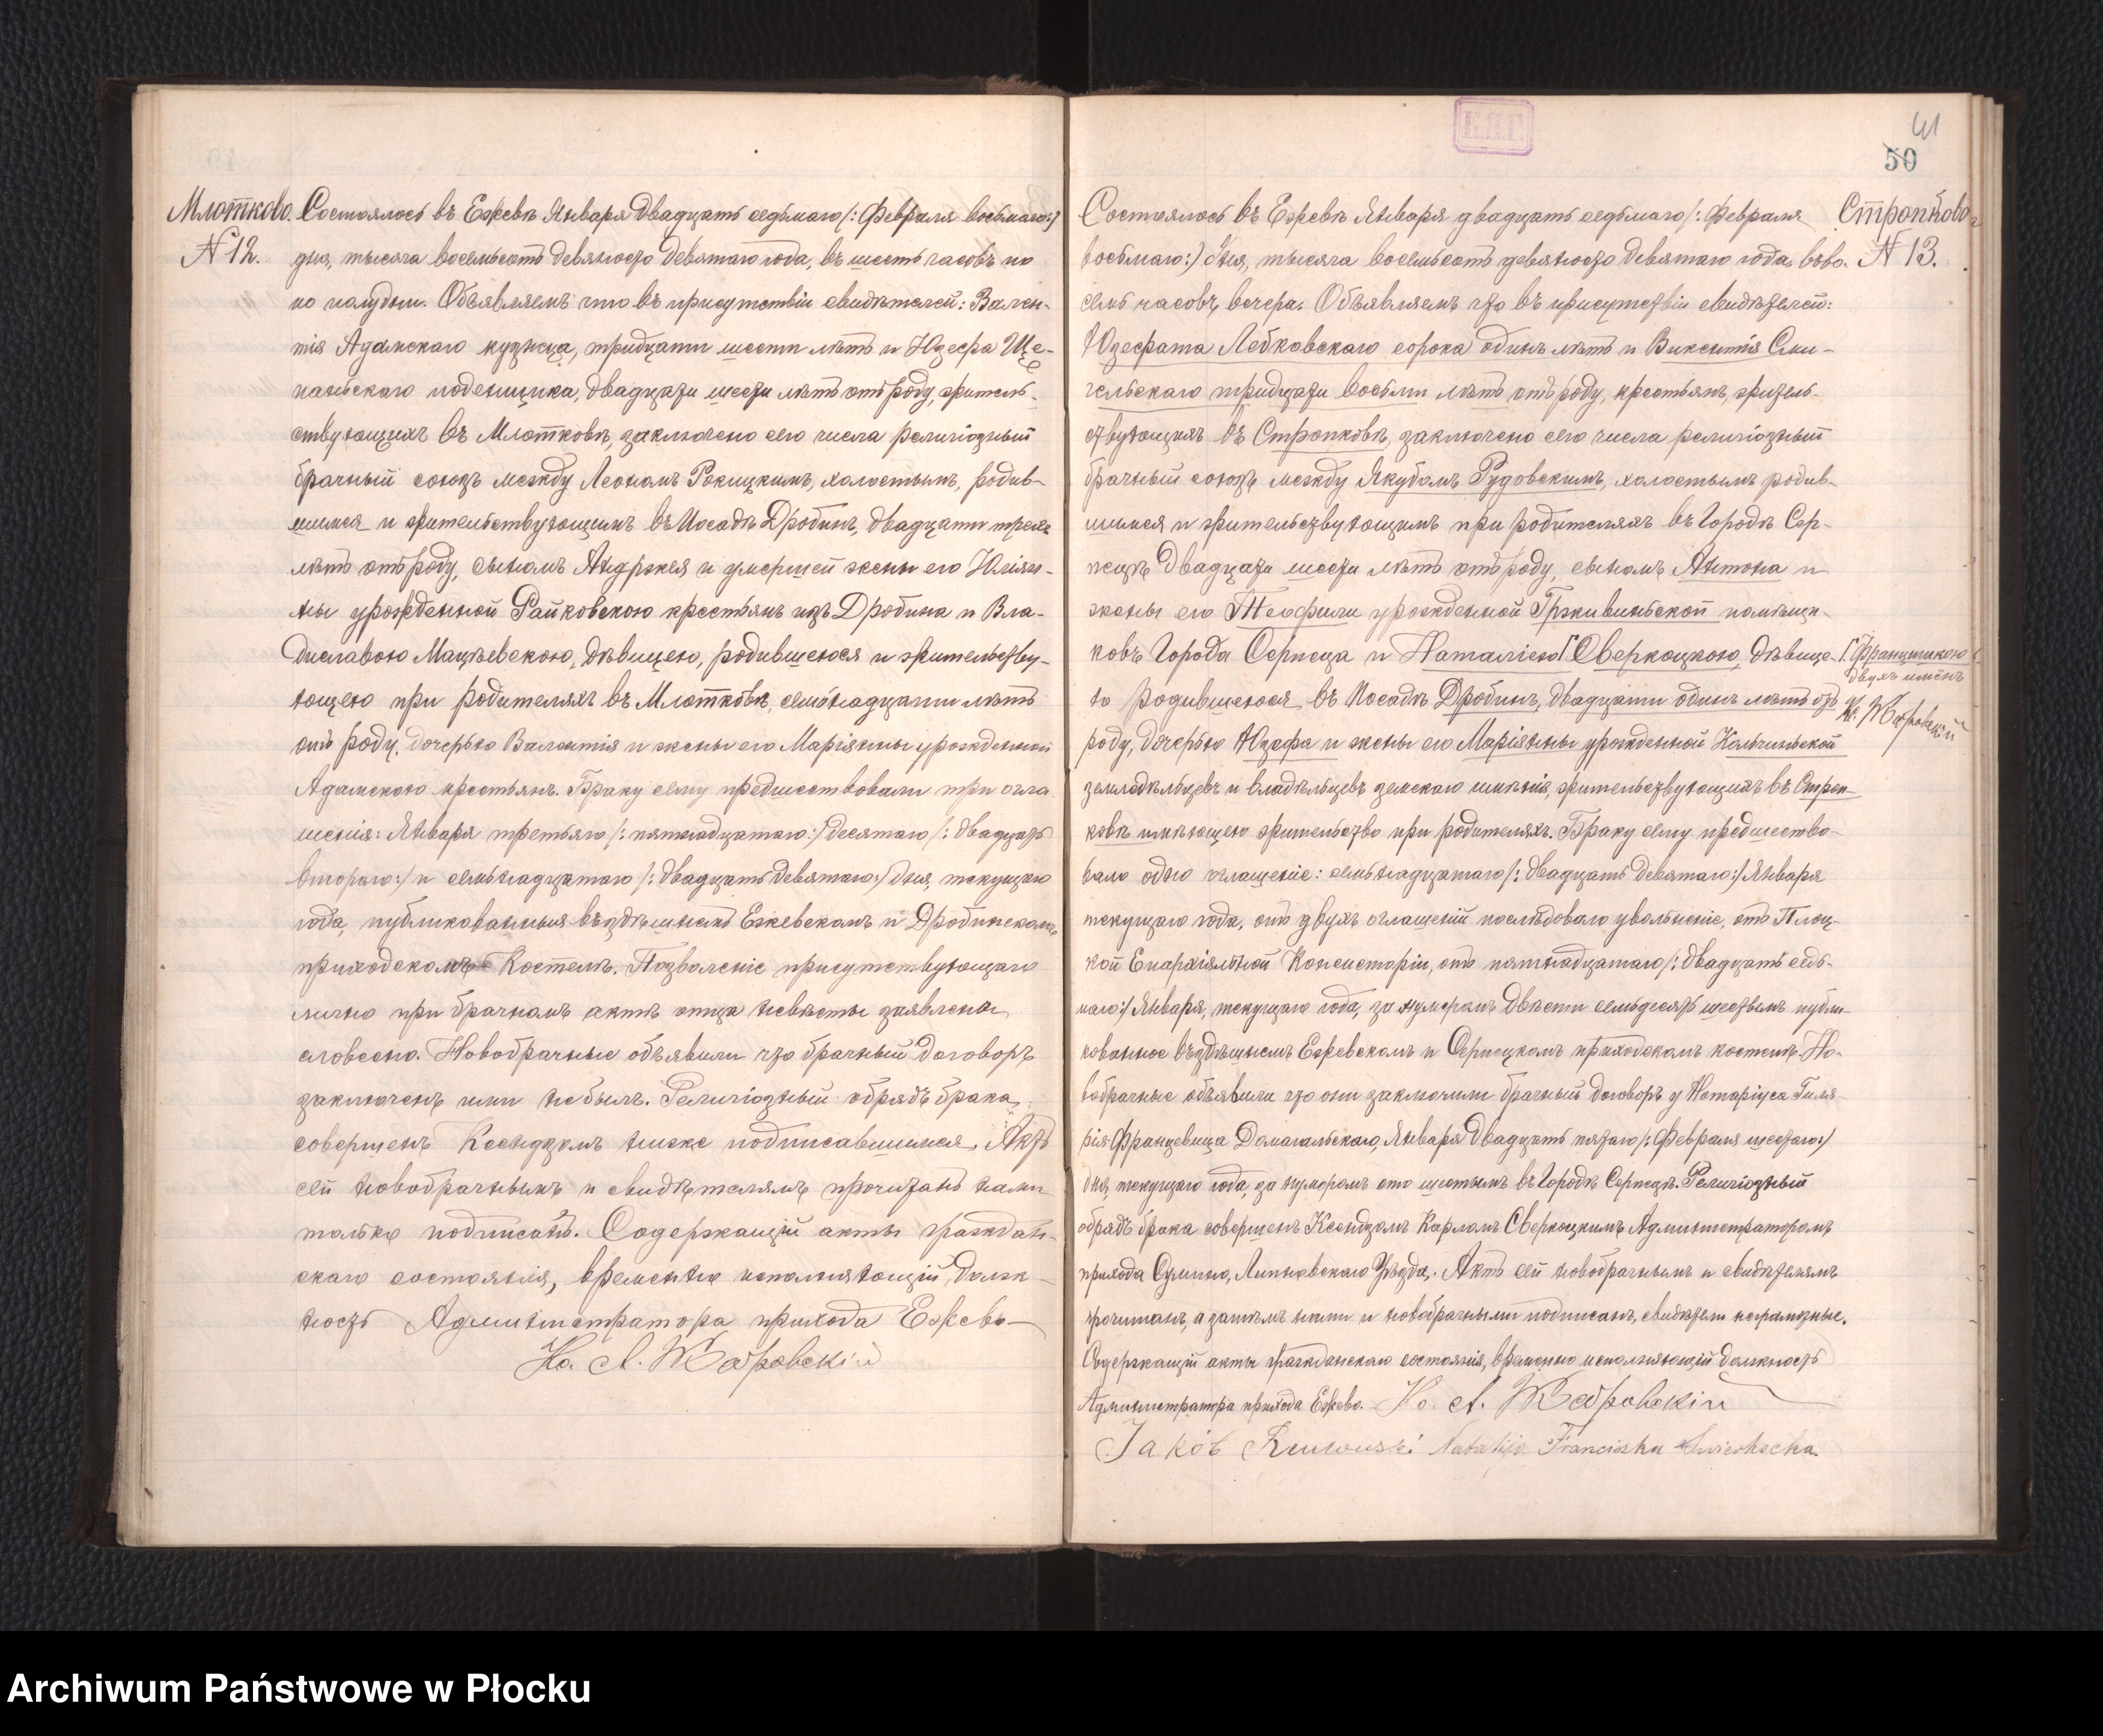 Млотково.
N 12.
Состоялось въ Ежевѣ Января двадцать седьмаго /: Февраля восьмаго:/
дня, тысяча восемьсотъ девяносто девятаго года, въ шесть часовъ по
по полудни. Объявляемъ что въ присутствіи свидѣтелей: Вален-
тія Адамскаго кузнеца, тридцати шести лѣтъ и Юзефа Ще-
паньскаго поденщика, двадцати шести лѣтъ отъ роду, житель-
ствующихъ въ Млотковѣ, заключено сего числа религіозный
брачный союзъ между Леономъ Рокицкимъ, холостымъ, родив-
шимся и жительствующимъ въ Посадѣ Дробинъ, двадцати трехъ
лѣтъ отъ роду, сыномъ Андржея и умершей жены его Юліян-
ны урожденной Райковскою крестьянъ изъ Дробина и Вла-
диславою Мацѣевскою, дѣвицею, родившеюся и жительству-
ющею при родителяхъ въ Млотковѣ, семьнадцати лѣтъ
отъ роду, дочерью Валентія и жены его Маріянны урожденной
Адамскою крестьянъ. Браку сему предшествовали три огла-
шенія: Января третьяго /: пятнадцатаго:/ десятаго /: двадцать
втораго:/ и семьнадцатаго /: двадцать девятаго:/ дня, текущаго
года, публикованныя въ здѣшнемъ Ежевскомъ и Дробинскомъ
приходскомъ Костелѣ. Позволеніе присутствующаго
лично при брачномъ актѣ отца невѣсты заявлено
словесно. Новобрачные объявили что брачный договоръ
заключенъ ими небылъ. Религіозный обрядъ брака
совершенъ Ксендзомъ ниже подписавшимся. Актъ
сей новобрачнымъ и свидѣтелямъ прочитанъ нами
только подписанъ. Содержащій акты граждан-
скаго состоянія, временно исполняющій долж-
ность Администратора прихода Ежево
Кс. А.
50
Стропково.
N 13.
Состоялось въ Ежевѣ Января двадцать седьмаго /: Февраля
восьмаго:/ дня, тысяча восемьсотъ девяносто девятаго года, въ во-
семь часовъ вечера. Объявляемъ что въ присутствіи свидѣтелей:
Юзефата Лебковскаго сорока одинъ лѣтъ и Викентія Сми-
гельскаго тридцати восьми лѣтъ отъ роду, крестьянъ, житель-
ствующихъ въ Стропковѣ, заключено сего числа религіозный
брачный союзъ между Якубомъ Рудовскимъ, холостымъ родив-
шимся и жительствующимъ при родителяхъ въ Городѣ Сер-
пецѣ двадцати шести лѣтъ отъ роду, сыномъ Антона и
жены его Теофили урожденной Гржкивиньской помѣщи-
ковъ Города Серпеца и Наталіею Сверкоцкою, дѣвице-
ю родившеюся въ Посадѣ Дробинъ, двадцати одинъ лѣтъ отъ
роду, дочерью Юзефа и жены его Маріянны урожденной Кольчиньской
земледѣльцевъ и владѣльцевъ земскаго имѣнія, жительствующихъ въ Строп-
ковѣ имѣющею жительство при родителяхъ. Браку сему предшество-
вало одно оглашеніе: семьнадцатаго /: двадцать девятаго:/ Января
текущаго года, отъ двухъ оглашеній послѣдовало увольненіе, отъ Плоц-
кой Епархіяльной Консисторіи, отъ пятнадцатаго /: двадцать седь-
маго:/ Января, текущаго года, за нумеромъ двѣсти семьдесятъ шестымъ публи-
кованное въ здѣшнемъ Ежевскомъ и Серпецкомъ приходскомъ костелѣ. Но-
вобрачные объявили что они заключили брачный договоръ у Нотаріуса Гиля-
рія Францевица Домагальскаго, Января двадцать пятаго /: Февраля шестаго:/
дня, текущаго года, за нумеромъ сто шестымъ въ Городѣ Серпецѣ. Религіозный
обрядъ брака совершенъ Ксендзомъ Карломъ Сверкоцкимъ Администраторомъ
прихода Сумино, Липновскаго Уѣзда. Актъ сей новобрачнымъ и свидѣтелямъ
прочитанъ, а затѣмъ нами и новобрачными подписанъ, свидѣтели неграмотные.
Содержащій акты гражданскаго состоянія, временно исполняющій должность
Администратора прихода Ежево. Кс. А.
Jakób Rudowski Natalija Franciszka Swierkocka.
Францишкою
двухъ именъ
Кс.
Archiwum Państwowe w Płocku